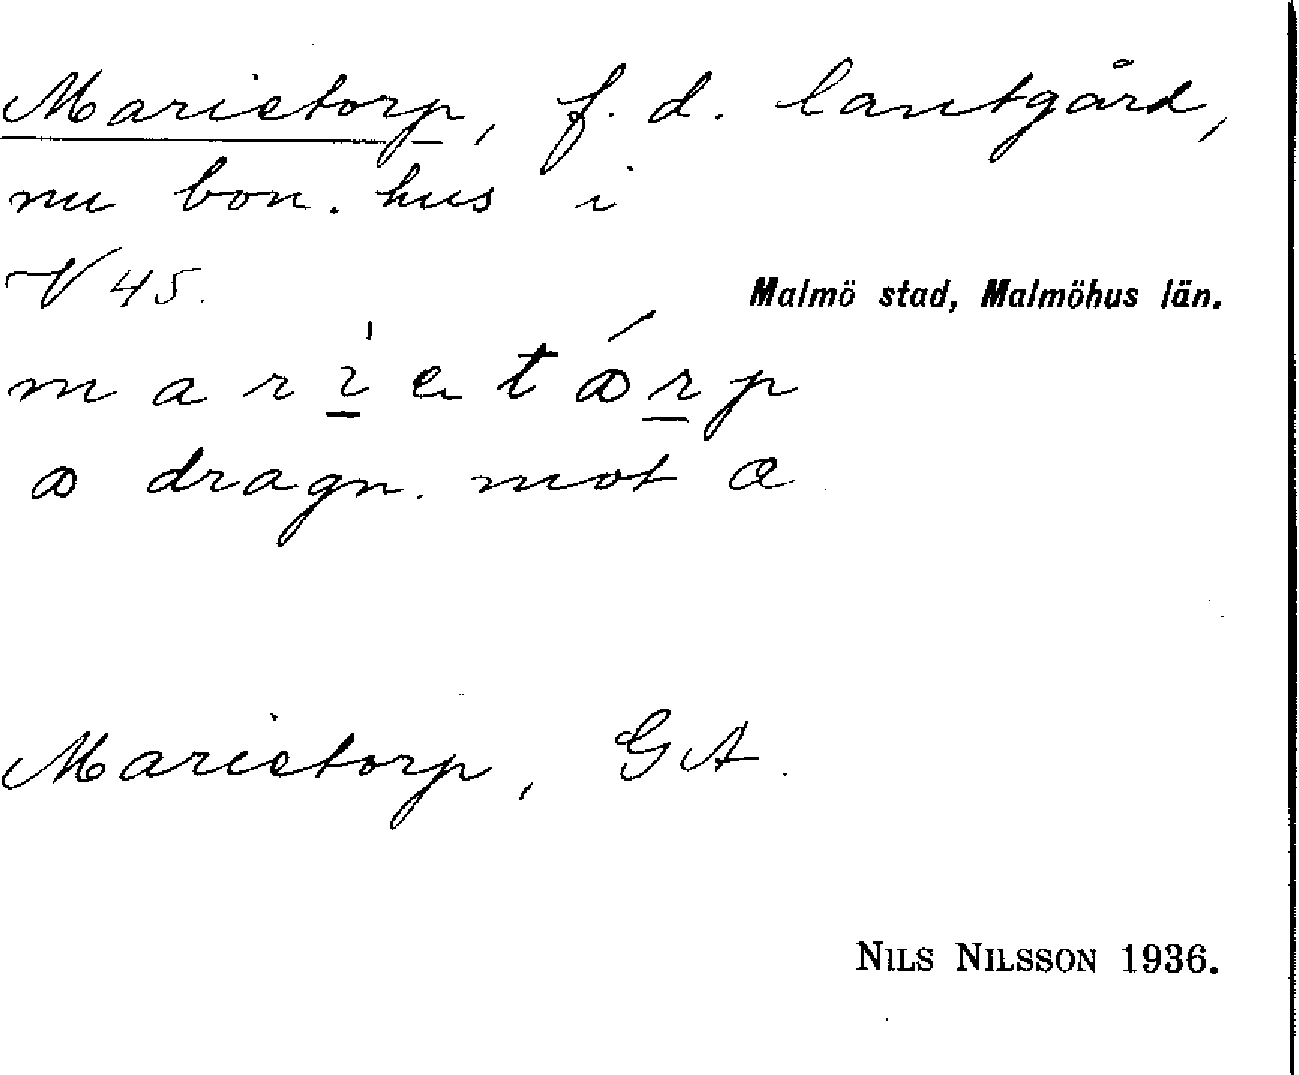 Marietorp, f. d. lantgård,
nu bon. hus i
V 45.
Malmö stad, Malmöhus län.
m a r i e t ɷ́ r p
ɷ dragn. mot a
Marietorp, GA.
NILS NILSSON 1936.